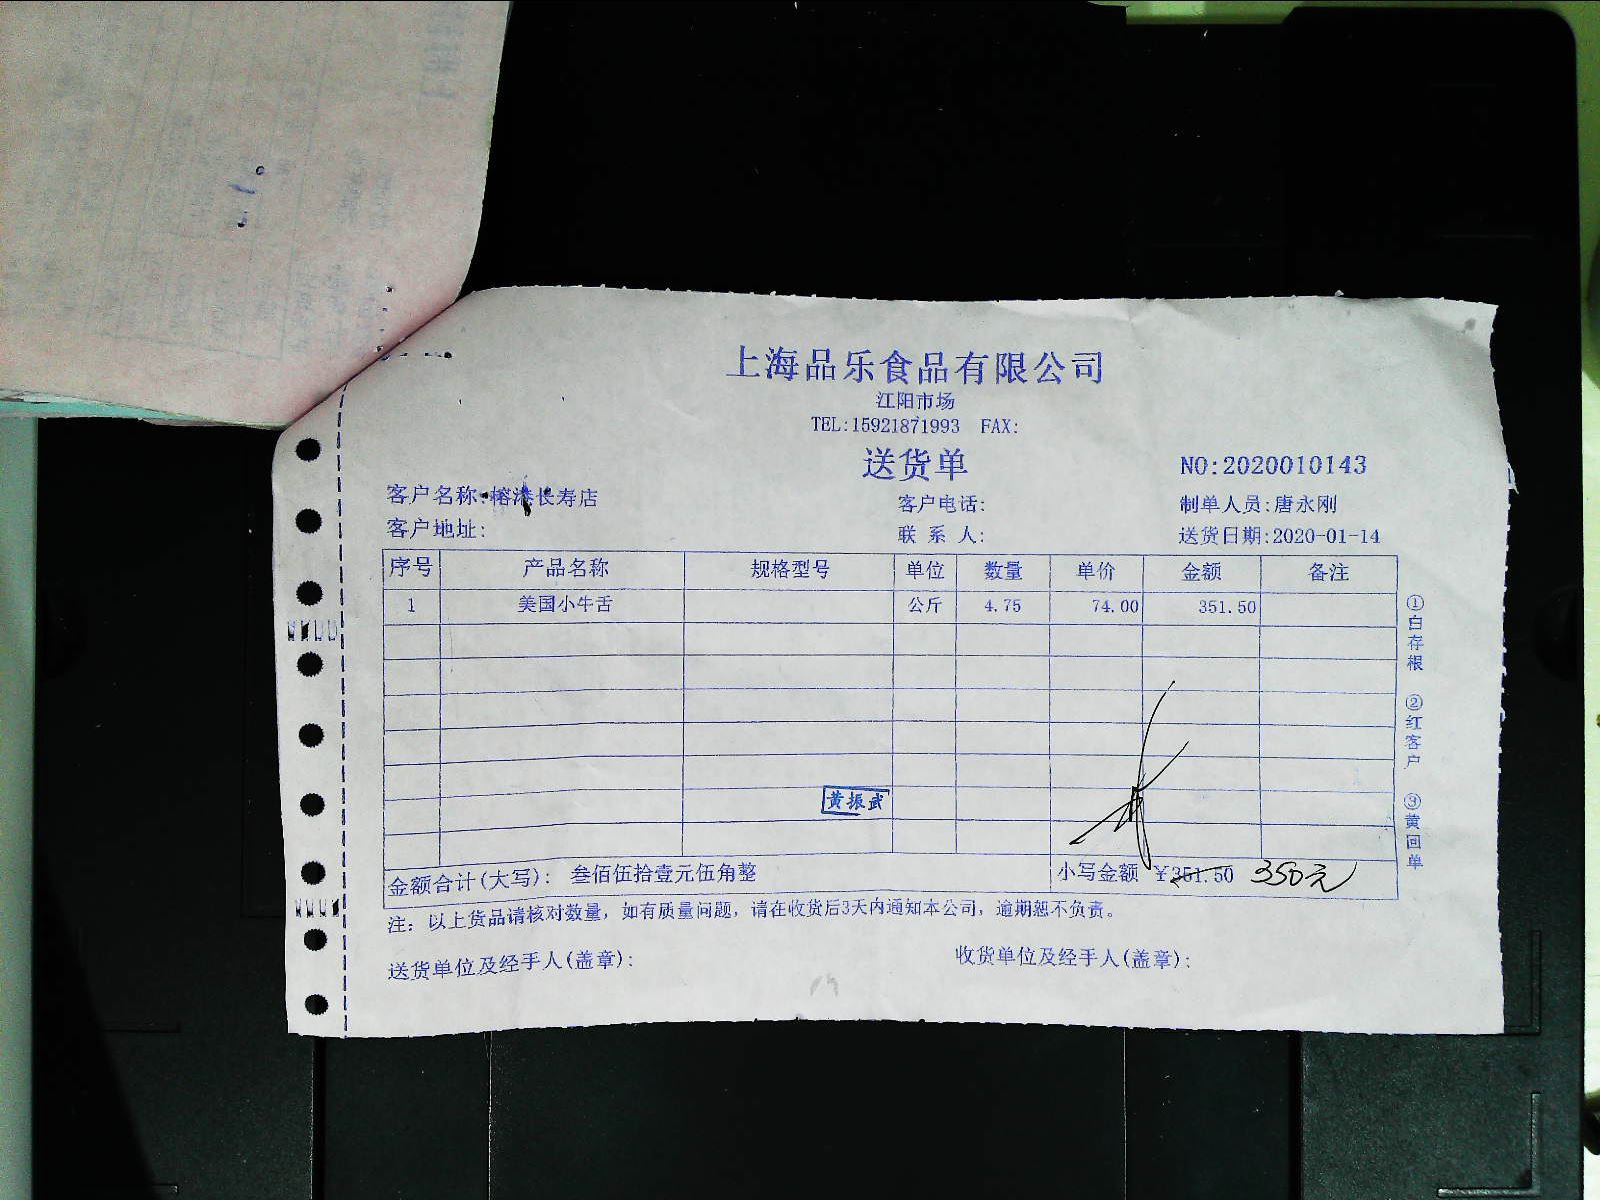 上海品乐食品有限公司
江阳市场
TEL:15921871993 FAX:
送货单
NO:2020010143
客户名称:榕港长寿店 客户电话: 制单人员:唐永刚
客户地址: 联 系 人: 送货日期:2020-01-14
序号 产品名称 规格型号 单位 数量 单价 金额 备注
1 美国小牛舌 公斤 4.75 74.00 351.50
黄振武
金额合计(大写): 叁佰伍拾壹元伍角整 小写金额 ¥351.50 350元
注: 以上货品请核对数量, 如有质量问题, 请在收货后3天内通知本公司, 逾期恕不负责。
送货单位及经手人(盖章): 收货单位及经手人(盖章):
①白存根 ②红客户 ③黄回单